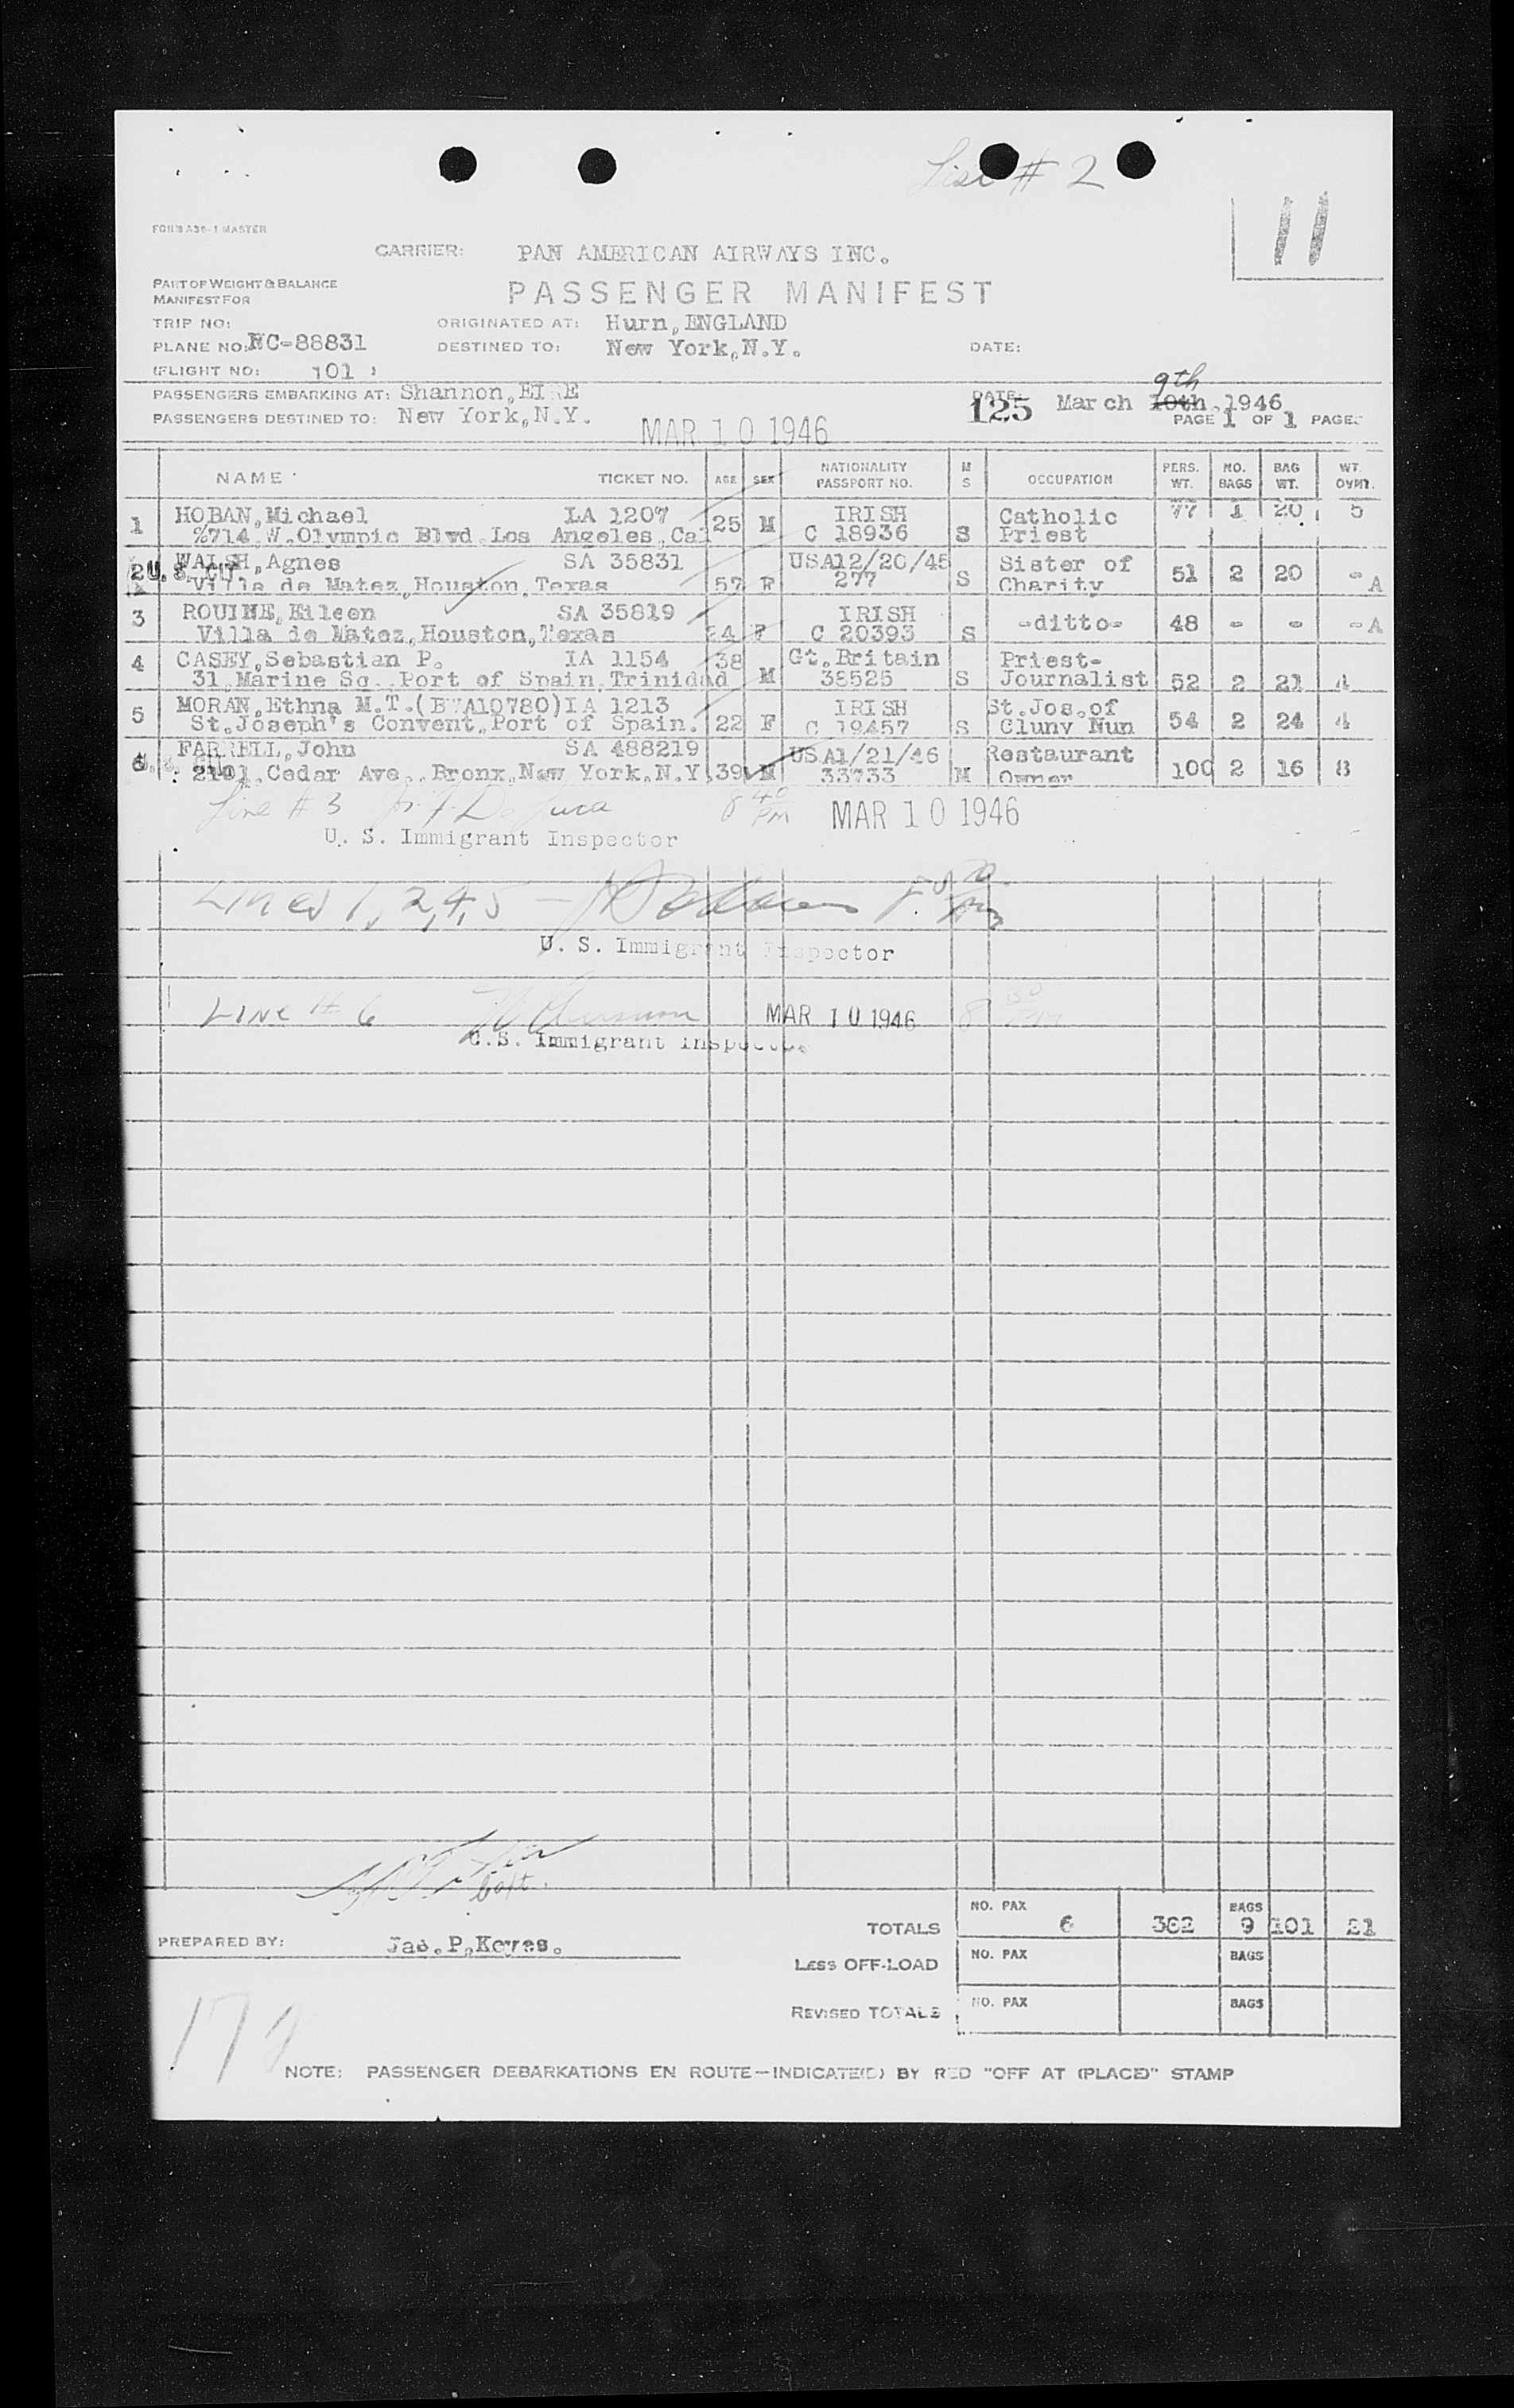 List # 2
11
FORM A36-1 MASTER
CARRIER: PAN AMERICAN AIRWAYS INC.
PART OF WEIGHT & BALANCE
MANIFEST FOR
PASSENGER MANIFEST
TRIP NO: ORIGINATED AT: Hurn, ENGLAND
PLANE NO: NC-88831 DESTINED TO: New York, N.Y. DATE:
(FLIGHT NO: 101 )
9th
PASSENGERS EMBARKING AT: Shannon, EIRE DATE: March 10th, 1946
125
PASSENGERS DESTINED TO: New York, N.Y. PAGE 1 OF 1 PAGES
MAR 10 1946
NAME TICKET NO. AGE SEX NATIONALITY PASSPORT NO. M S OCCUPATION PERS. WT. NO. BAGS BAG WT. WT. OVPMT.
1 HOBAN, Michael LA 1207 25 M IRISH Catholic 77 1 20 5
%714, W. Olympic Blvd, Los Angeles, Cal C 18936 S Priest
2 WALSH, Agnes SA 35831 USA12/20/45 Sister of 51 2 20 - A
U.S. CIT
Villa de Matez, Houston, Texas 57 F 277 S Charity
3 ROUINE, Eileen SA 35819 IRISH -ditto- 48 - - - A
Villa de Matez, Houston, Texas 24 F C 20393 S
4 CASEY, Sebastian P. IA 1154 38 Gt. Britain Priest-
31, Marine Sq., Port of Spain, Trinidad M 38525 S Journalist 52 2 21 4
5 MORAN, Ethna M.T. (BWA10780) IA 1213 IRISH St. Jos. of
St. Joseph's Convent, Port of Spain. 22 F C 19457 S Cluny Nun 54 2 24 4
6 FARRELL, John SA 488219 USA1/21/46 Restaurant
2101, Cedar Ave., Bronx, New York, N.Y. 39 M 33733 M Owner 100 2 16 8
Line # 3 De Luca 8 40 PM MAR 10 1946
U. S. Immigrant Inspector
Lines 1, 2, 4, 5 -
U. S. Immigrant Inspector
LINE # 6 MAR 10 1946 8
U.S. Immigrant Inspector
Capt.
PREPARED BY: Jas. P. Keyes.
TOTALS NO. PAX 6 382 BAGS 9 101 21
LESS OFF-LOAD NO. PAX BAGS
REVISED TOTALS NO. PAX BAGS
NOTE: PASSENGER DEBARKATIONS EN ROUTE—INDICATE(D) BY RED "OFF AT (PLACE)" STAMP